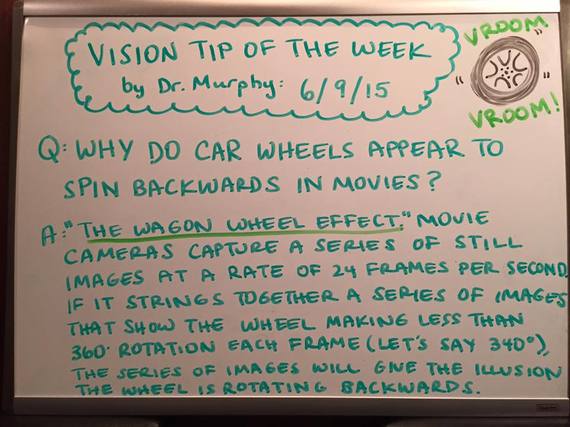 VISION TIP OF THE WEEK
by Dr. Murphy: 6/9/15
VROOM
VROOM!
Q: WHY DO CAR WHEELS APPEAR TO
SPIN BACKWARDS IN MOVIES?
A: "THE WAGON WHEEL EFFECT." MOVIE
CAMERAS CAPTURE A SERIES OF STILL
IMAGES AT A RATE OF 24 FRAMES PER SECOND.
IF IT STRINGS TOGETHER A SERIES OF IMAGES
THAT SHOW THE WHEEL MAKING LESS THAN
360° ROTATION EACH FRAME (LET'S SAY 340°),
THE SERIES OF IMAGES WILL GIVE THE ILLUSION
THE WHEEL IS ROTATING BACKWARDS.